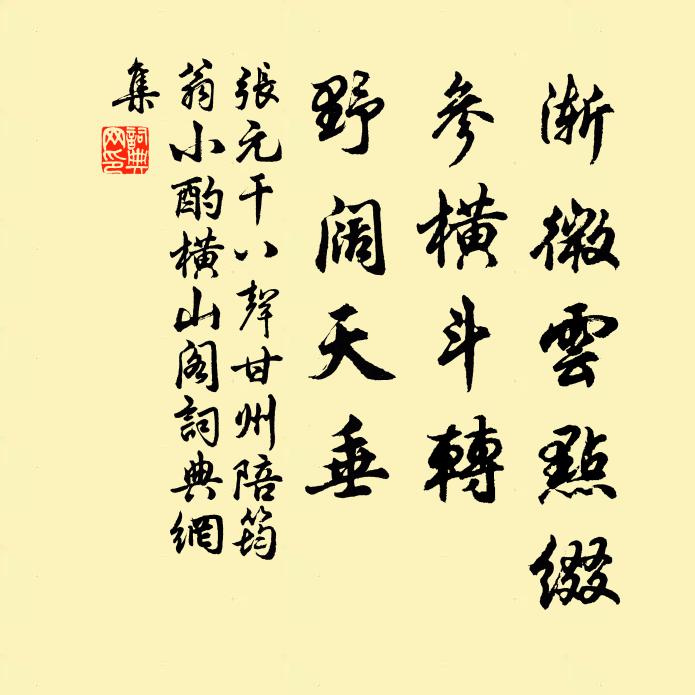 漸微雲點綴
參橫斗轉
野闊天垂
張元干八聲甘州陪筠
翁小酌橫山閣詞典網
集
詞典
网印